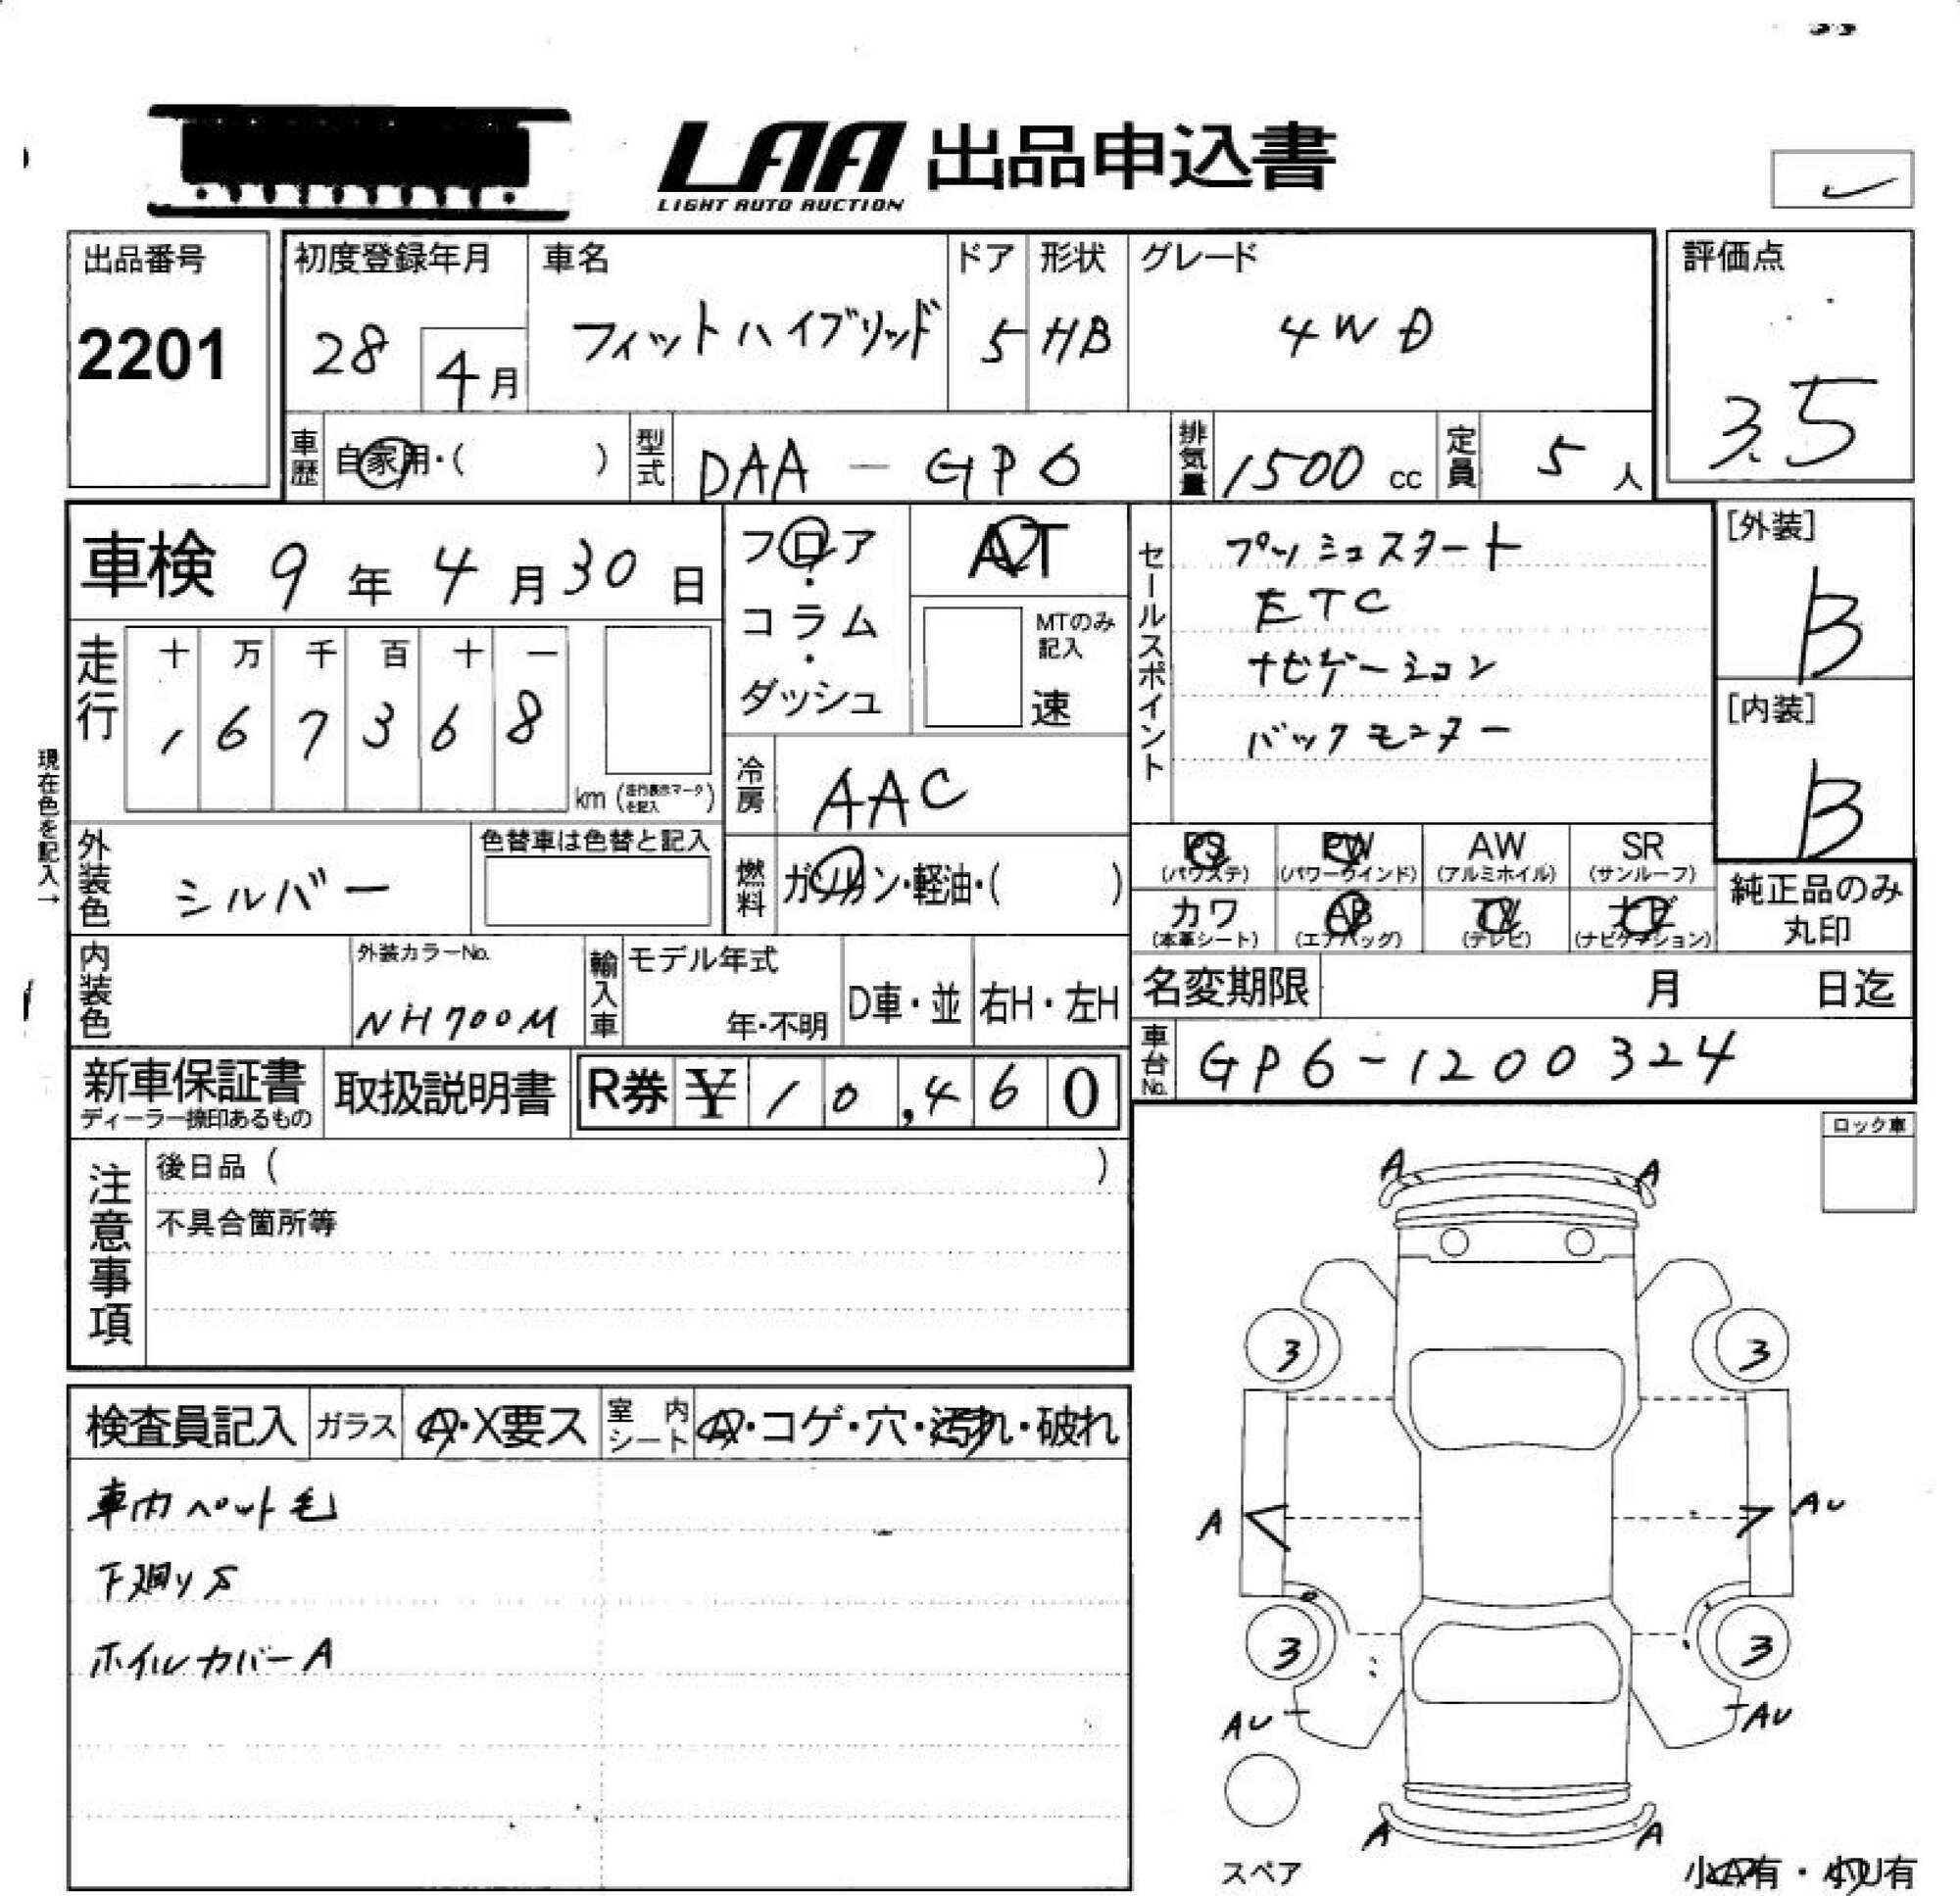 LAA 出品申込書
LIGHT AUTO AUCTION
出品番号
2201
初度登録年月
28 4月
車名
フィットハイブリッド
ドア
5
形状
HB
グレード
4WD
評価点
3.5
車歴 自家用・( )
型式 DAA-GP6
排気量 1500 cc
定員 5 人
車検 9年4月30日
フロア・コラム・ダッシュ
AT
MTのみ記入
速
セールスポイント
プッシュスタート
ETC
ナビゲーション
バックモニター
[外装]
B
[内装]
B
走行
十 万 千 百 十 一
1 6 7 3 6 8
km (走行表示マークを記入)
現在色を記入→
冷房 AAC
外装色 シルバー
色替車は色替と記入
燃料 ガソリン・軽油・( )
PS (パワステ)
PW (パワーウインド)
AW (アルミホイル)
SR (サンルーフ)
カワ (本革シート)
AB (エアバッグ)
TV (テレビ)
ナビ (ナビゲーション)
純正品のみ丸印
内装色
外装カラーNo.
NH700M
輸入車
モデル年式
年・不明
D車・並
右H・左H
名変期限 月 日迄
車台No. GP6-1200324
新車保証書
ディーラー捺印あるもの
取扱説明書
R券 ¥10,460
ロック車
注意事項
後日品 ( )
不具合箇所等
検査員記入
ガラス A・X要ス
室内シート A・コゲ・穴・汚れ・破れ
車内ペット毛
下廻りS
ホイルカバーA
A A
3 3
A AU
3 3
AU AU
A A
スペア
小A有・小U有